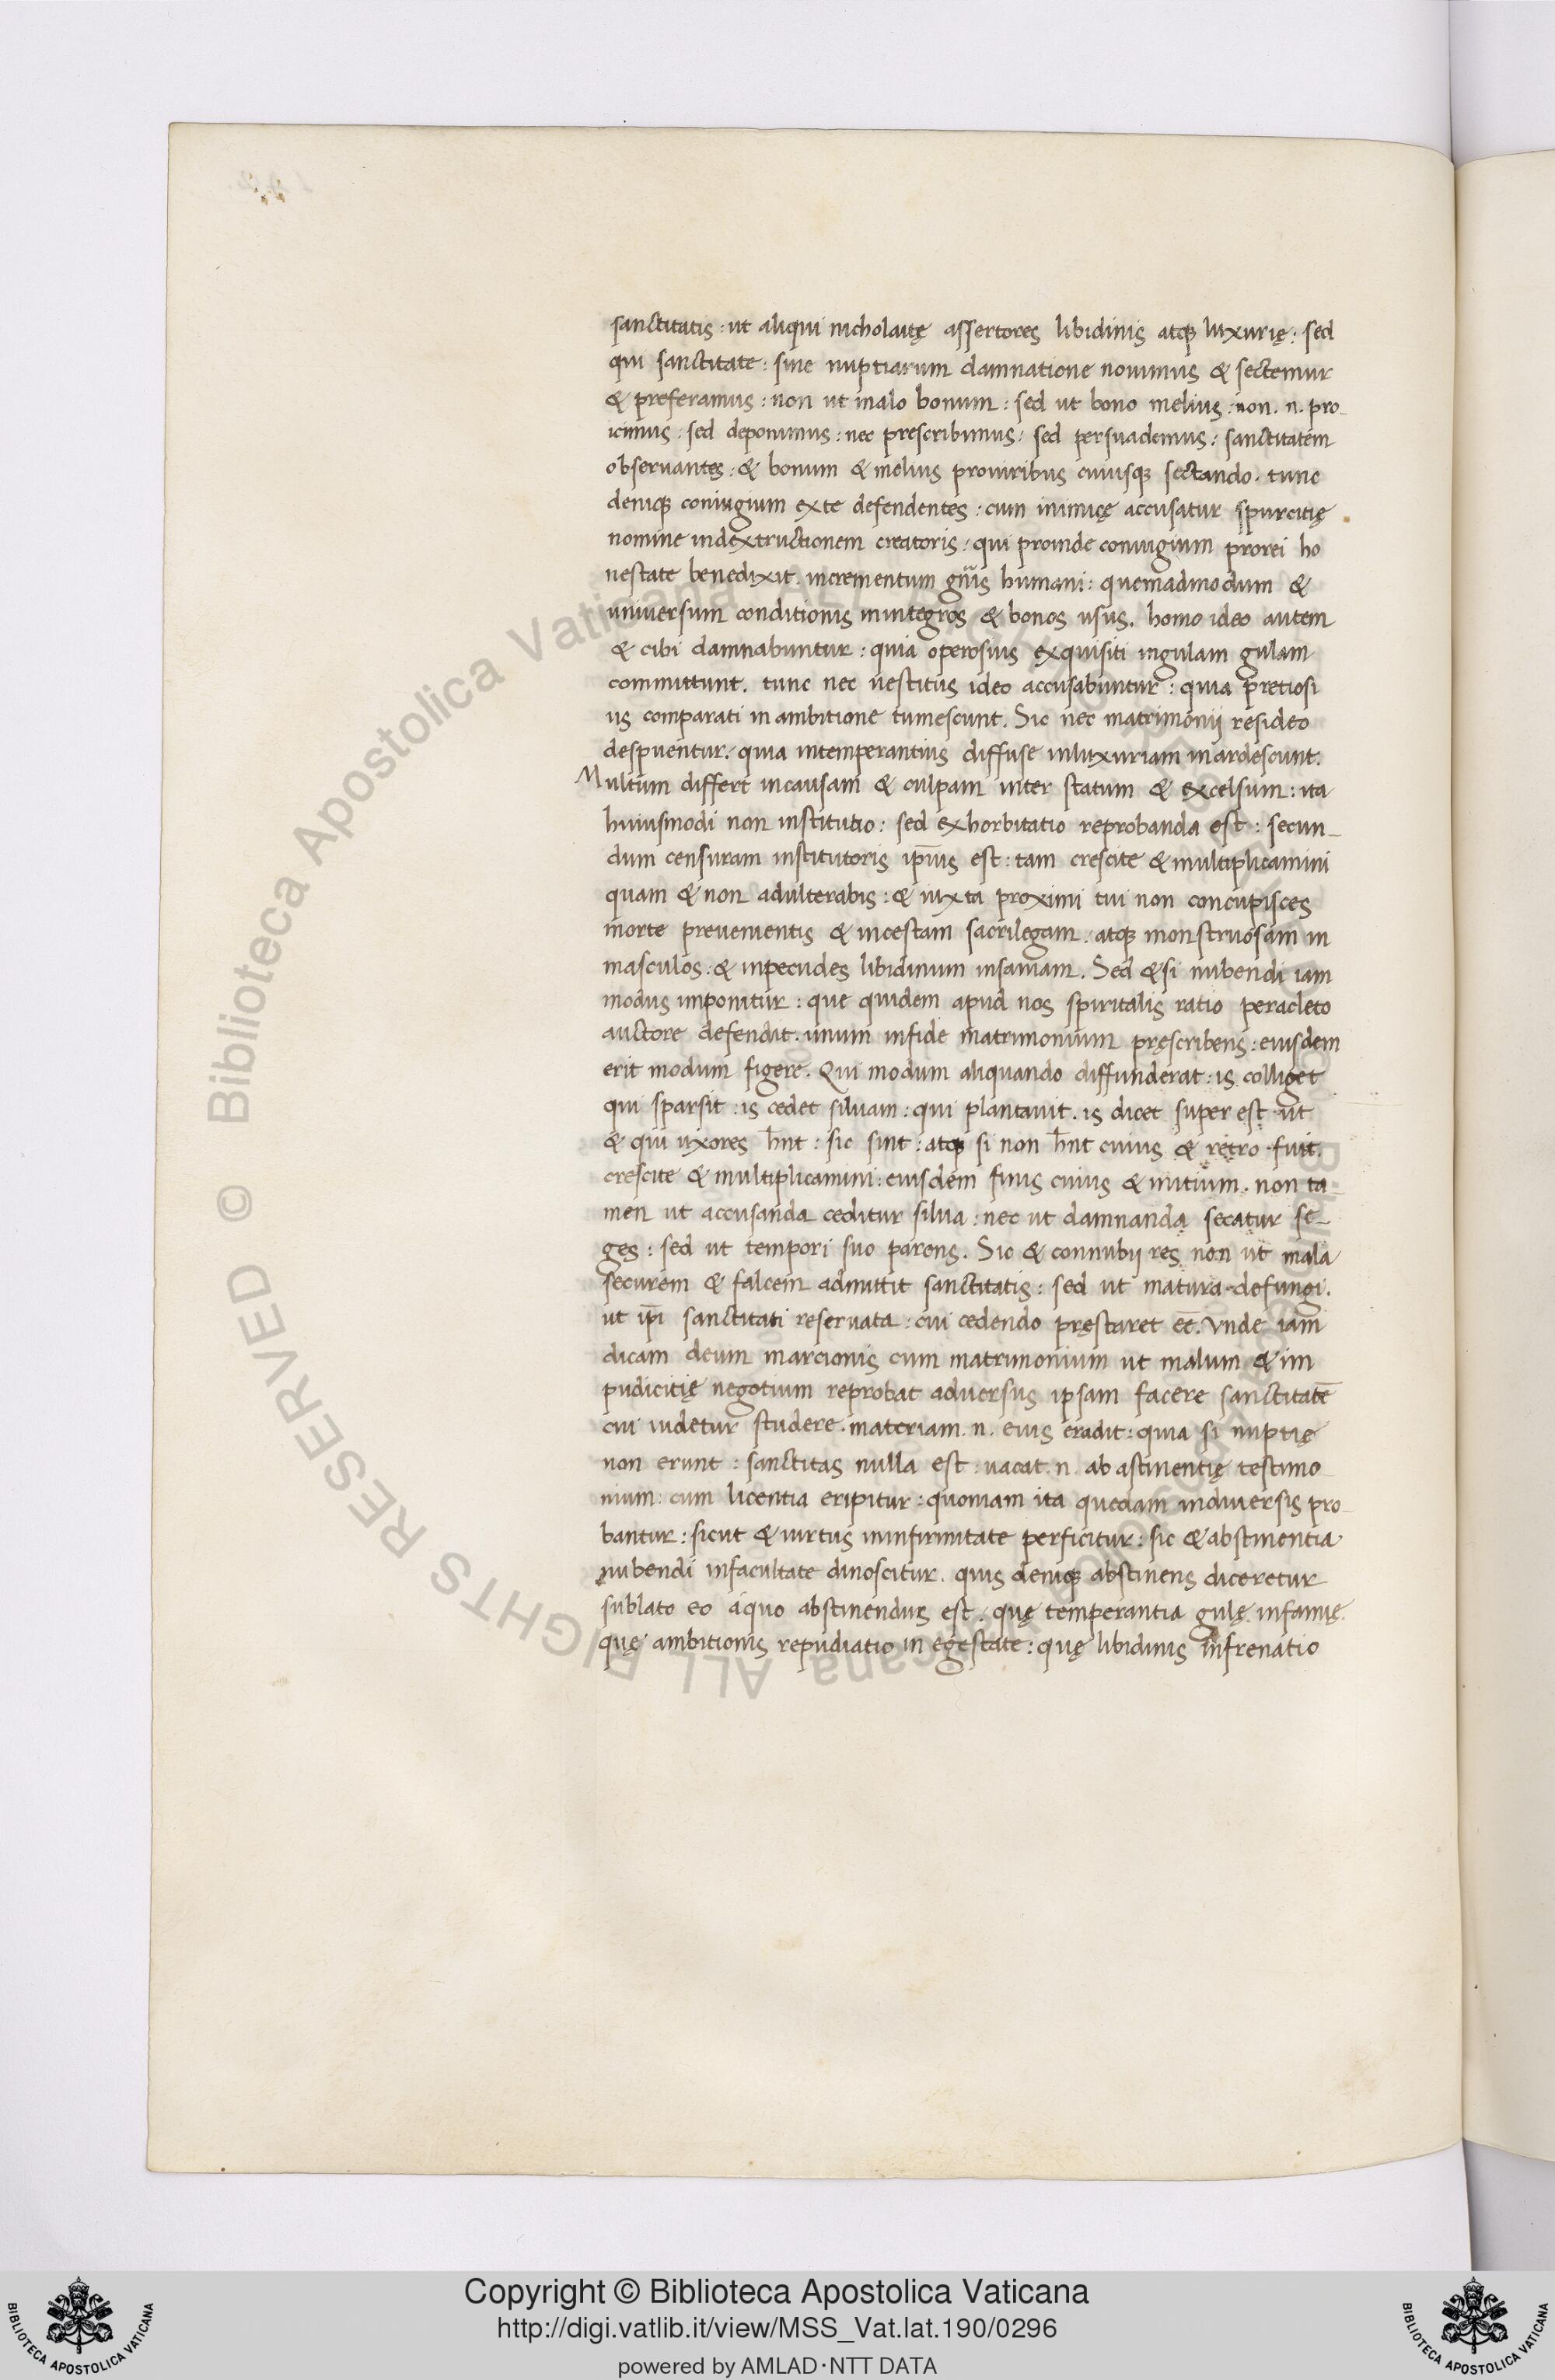 sanctitatis : ut aliqui nicholaitę assertores libidinis atq luxurię : sed
qui sanctitate : sine nuptiarum damnatione nouimus & sectemur
& preferamus : non ut malo bonum : sed ut bono melius : non . n . pro-
icimus : sed deponimus : nec prescribimus : sed persuademus : sanctitatem
obseruantes : & bonum & melius prouiribus cuiusq sectando . tunc
deniq coniugium exte defendentes : cum inimicę accusatur spurcitię
nomine indextructionem creatoris : qui proinde coniugium prorei ho
nestate benedixit . incrementum gn̄is humani : quemadmodum &
uniuersum conditionis inintegros & bonos usus . homo ideo autem
& cibi damnabuntur : quia operosius exquisiti ingulam gulam
committunt . tunc nec uestitus ideo accusabuntur : quia pretiosi
us comparati in ambitione tumescunt . Sic nec matrimonij resideo
despuentur . quia intemperantius diffuse inluxuriam inardescunt .
Multum differt incausam & culpam inter statum & excelsum : ita
huiusmodi non institutio : sed exhorbitatio reprobanda est : secun-
dum censuram institutoris ip̄ius est : tam crescite & multiplicamini
quam & non adulterabis : & iuxta proximi tui non concupisces
morte preuenientis & incestam sacrilegam . atq monstruosam in
masculos : & inpecudes libidinum insaniam . Sed & si nubendi iam
modus imponitur : que quidem apud nos spiritalis ratio peracleto
auctore defendit . unum infide matrimonium pręscribens : eiusdem
erit modum figere . Qui modum aliquando diffunderat : is colliget
qui sparsit : is cedet siluam : qui plantauit . is dicet super est ut
& qui uxores hn̄t : sic sint : atq si non hn̄t cuius & retro fuit .
crescite & multiplicamini : eiusdem finis cuius & initium . non ta-
men ut accusanda ceditur silua : nec ut damnanda secatur se-
ges : sed ut tempori suo parens . Sic & connubij res non ut mala
securem & falcem admittit sanctitatis : sed ut matura defungi .
ut ip̄i sanctitati reseruata : cui cedendo pręstaret eē . Vnde iam
dicam deum marcionis cum matrimonium ut malum & im
pudicitię negotium reprobat aduersus ipsam facere sanctitatē
cui uidetur studere . materiam . n . eius eradit : quia si nuptię
non erunt : sanctitas nulla est : uacat . n . ab astinentię testimo
nium : cum licentia eripitur : quoniam ita quedam indiuersis pro-
bantur : sicut & uirtus ininfirmitate perficitur : sic & abstinentia
nubendi infacultate dinoscitur . quis deniq abstinens diceretur
sublato eo áquo abstinendus est . quę temperantia gulę infamię .
quę ambitionis repudiatio in egestate : quę libidinis infrenatio
Copyright © Biblioteca Apostolica Vaticana
http://digi.vatlib.it/view/MSS_Vat.lat.190/0296
powered by AMLAD·NTT DATA